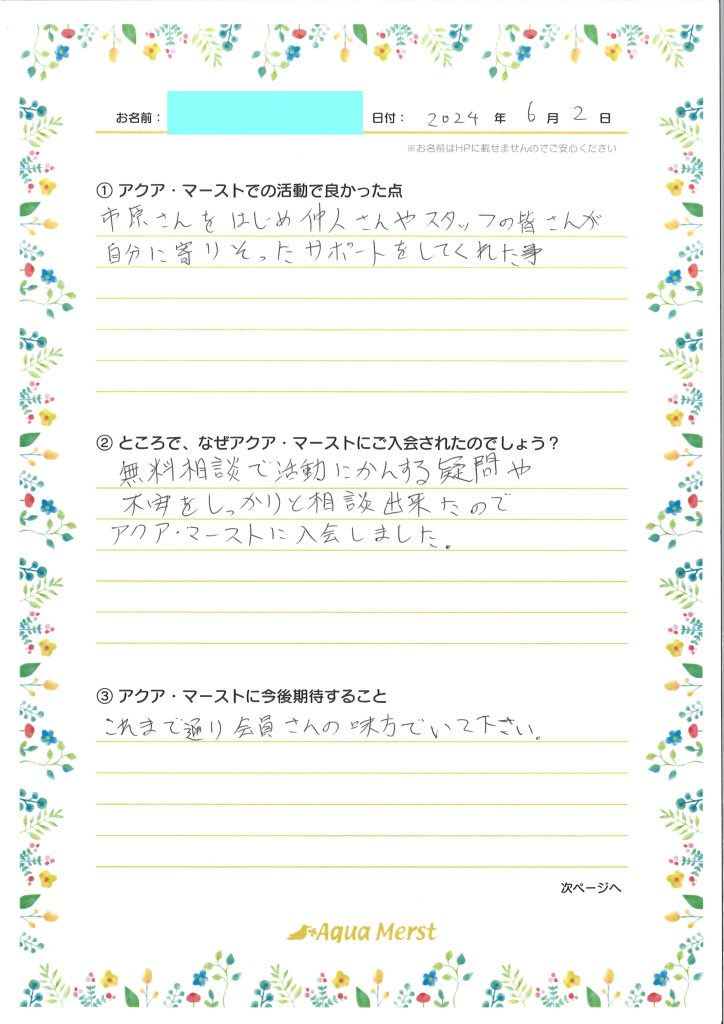 お名前： 日付： 2024 年 6 月 2 日
※お名前はHPに載せませんのでご安心ください
① アクア・マーストでの活動で良かった点
市原さんをはじめ仲人さんやスタッフの皆さんが
自分に寄りそったサポートをしてくれた事
② ところで、なぜアクア・マーストにご入会されたのでしょう？
無料相談で活動にかんする疑問や
不安をしっかりと相談出来たので
アクア・マーストに入会しました。
③ アクア・マーストに今後期待すること
これまで通り会員さんの味方でいて下さい。
次ページへ
Aqua Merst